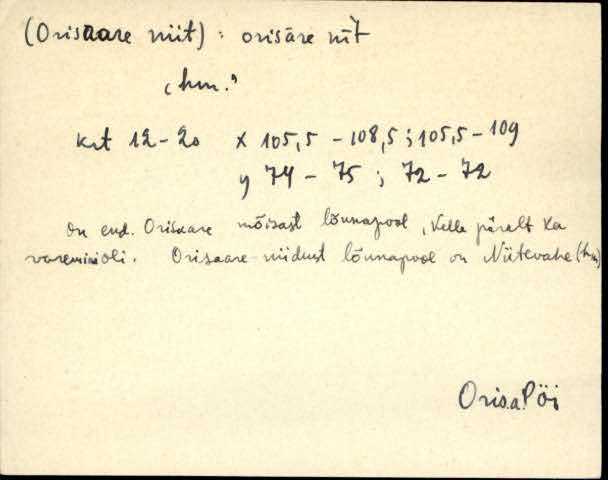 (Orisaare niit) : orisāre nīt̀
„hm."
krt 12-20 x 105,5 - 108,5 ; 105,5 - 109
y 74 - 75 ; 72 - 72
on end. Orisaare mõisast lõunapool, kelle päralt ka
varemini oli. Orisaare niidust lõunapool on Niitevahe (hm)
Oris.a. Pöi